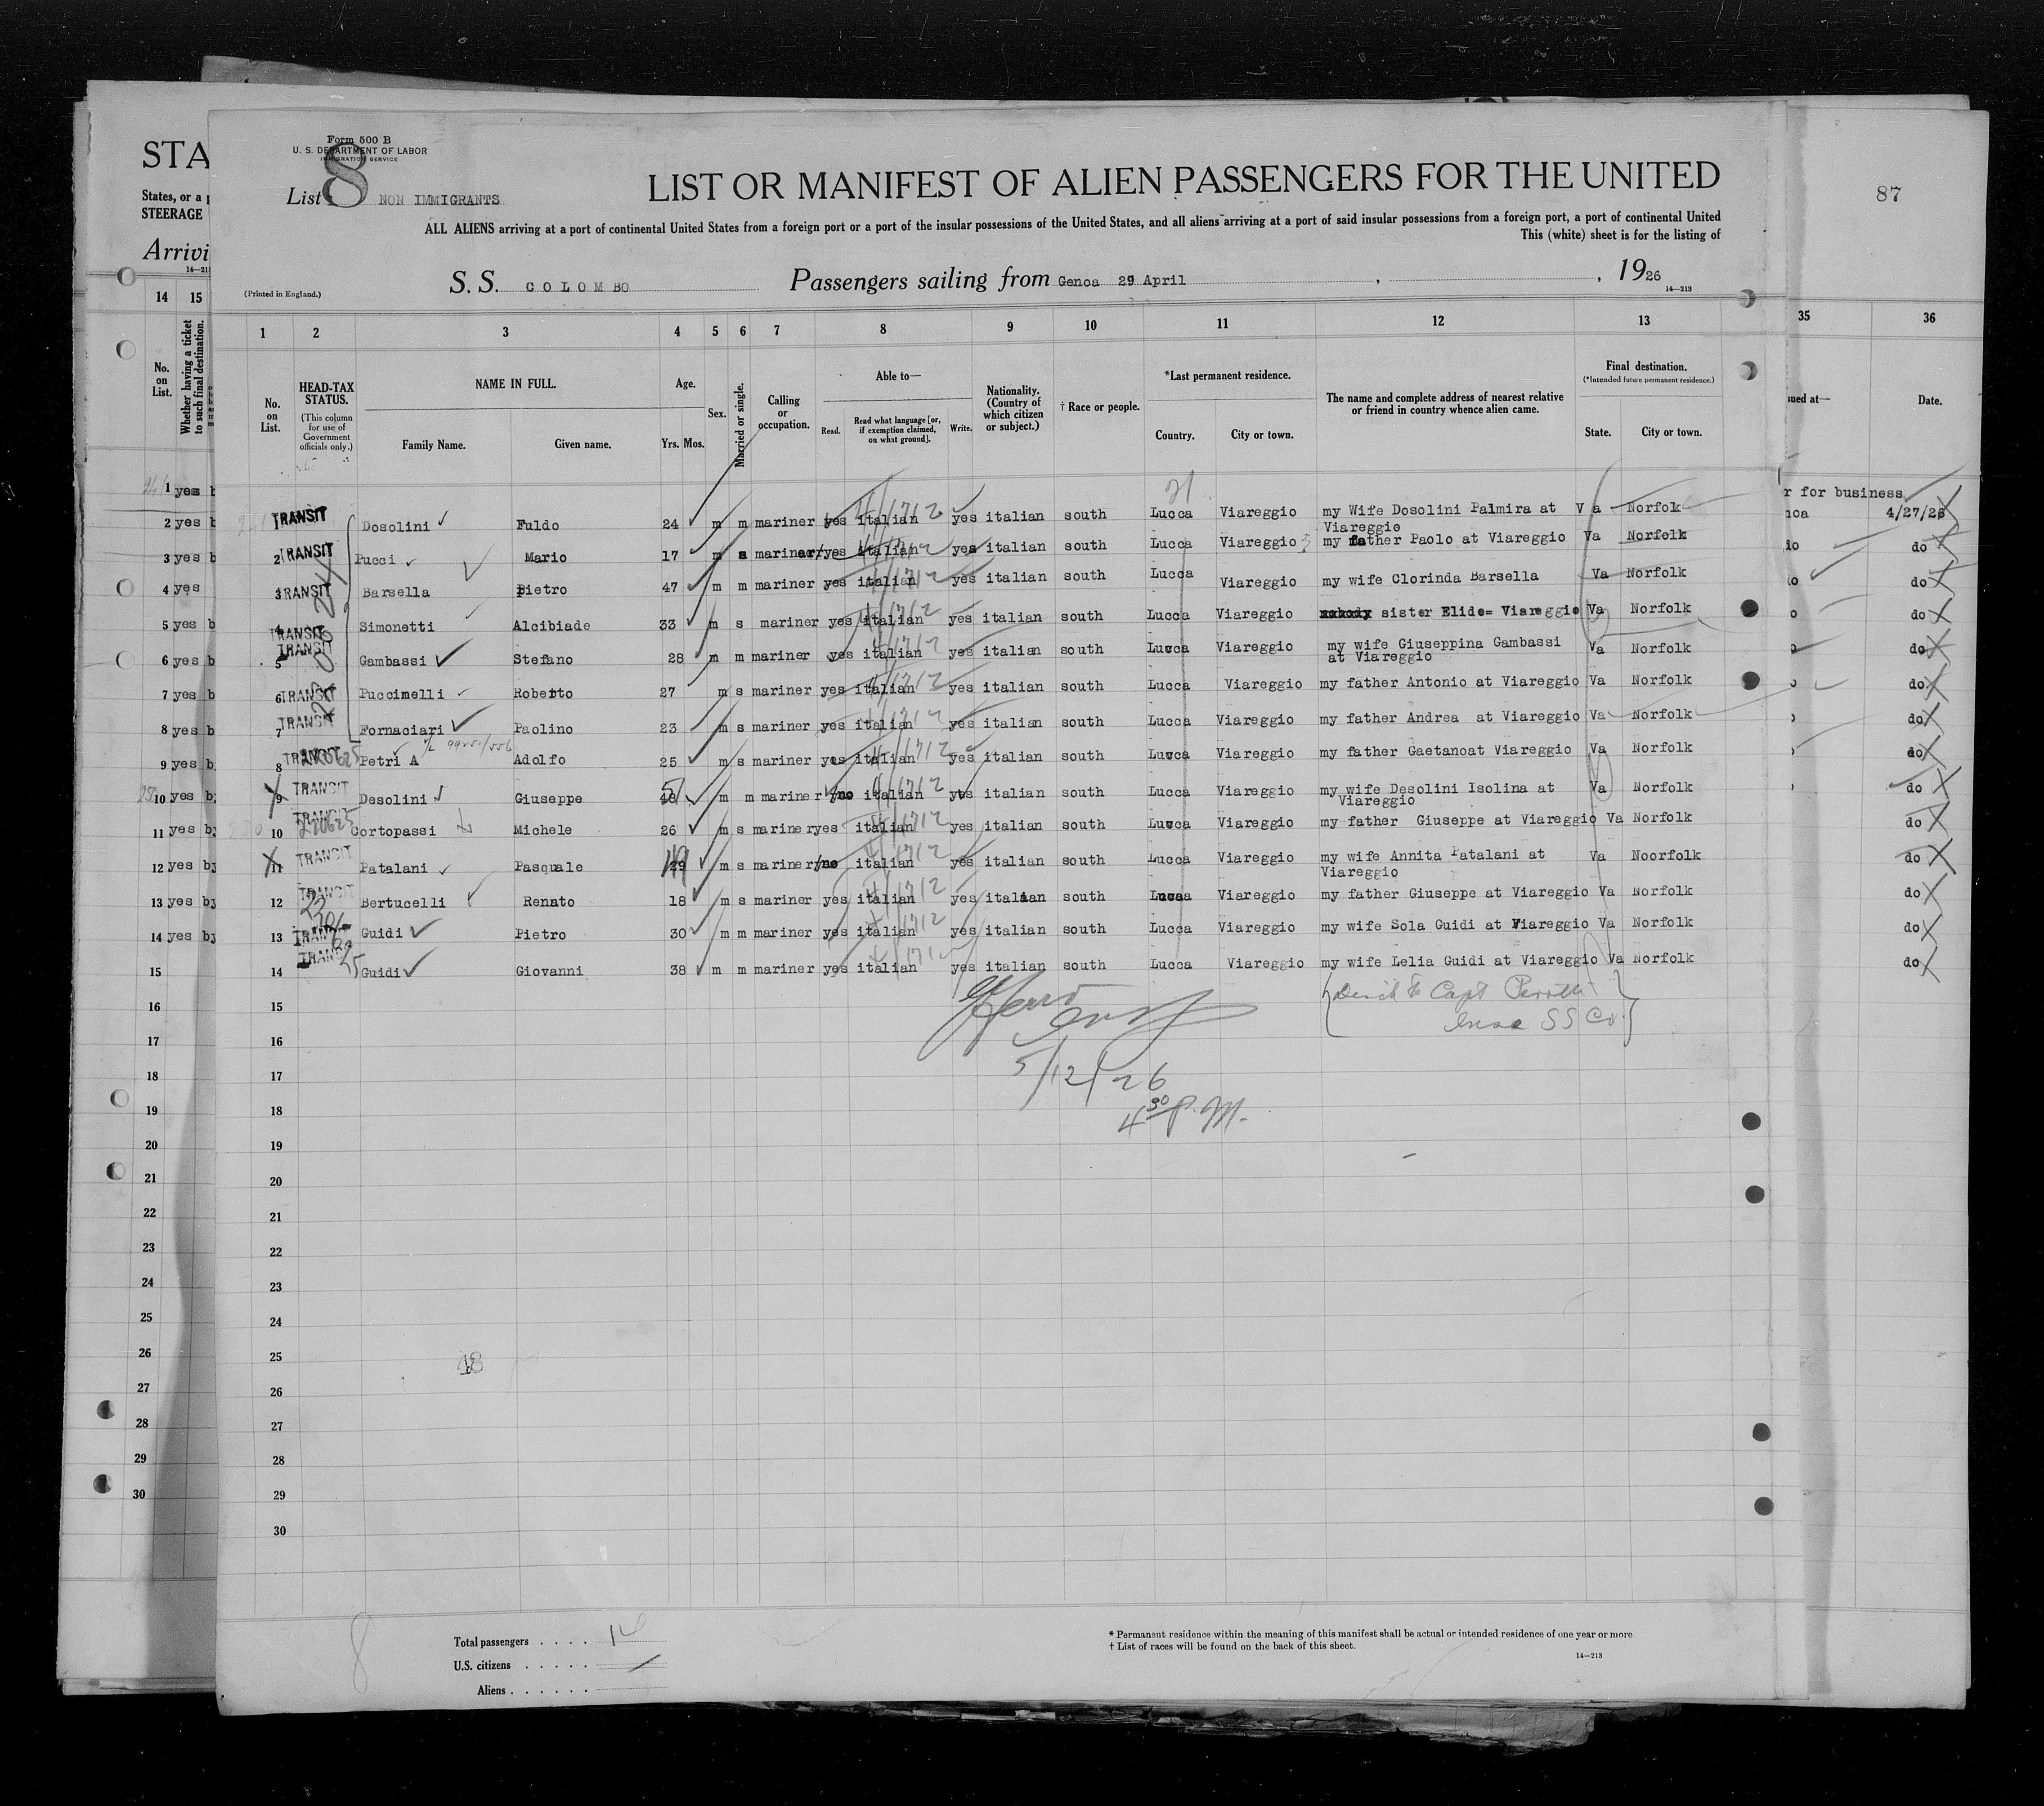 STA
States, or a p
STEERAGE
Arrivi
14—213
Form 500 B
U. S. DEPARTMENT OF LABOR
IMMIGRATION SERVICE
List 8 NON IMMIGRANTS
LIST OR MANIFEST OF ALIEN PASSENGERS FOR THE UNITED
87
ALL ALIENS arriving at a port of continental United States from a foreign port or a port of the insular possessions of the United States, and all aliens arriving at a port of said insular possessions from a foreign port, a port of continental United
This (white) sheet is for the listing of
(Printed in England.)
S. S. COLOMBO Passengers sailing from Genoa 29 April , , 1926
14—213
14 15 1 2 3 4 5 6 7 8 9 10 11 12 13 35 36
No. on List.
Whether having a ticket to such final destination.
No. on List.
HEAD-TAX STATUS.
(This column for use of Government officials only.)
NAME IN FULL.
Family Name. Given name.
Age.
Yrs. Mos.
Sex.
Married or single.
Calling or occupation.
Able to—
Read. Read what language [or, if exemption claimed, on what ground]. Write.
Nationality. (Country of which citizen or subject.)
† Race or people.
*Last permanent residence.
Country. City or town.
The name and complete address of nearest relative or friend in country whence alien came.
Final destination.
(*Intended future permanent residence.)
State. City or town.
ued at— Date.
1 yes b 21 r for business
2 yes b TRANSIT Dosolini Fuldo 24 m m mariner yes italian yes italian south Lucca Viareggio my Wife Dosolini Palmira at Viareggio Va Norfolk noa 4/27/26
3 yes b 2 TRANSIT Pucci Mario 17 m s mariner yes italian yes italian south Lucca Viareggio my father Paolo at Viareggio Va Norfolk do do
4 yes 3 TRANSIT Barsella Pietro 47 m m mariner yes italian yes italian south Lucca Viareggio my wife Clorinda Barsella Va Norfolk do do
5 yes b 4 TRANSIT Simonetti Alcibiade 33 m s mariner yes italian yes italian south Lucca Viareggio nobody sister Elide= Viareggio Va Norfolk o do
6 yes b 5 TRANSIT Gambassi Stefano 28 m m mariner yes italian yes italian south Lucca Viareggio my wife Giuseppina Gambassi at Viareggio Va Norfolk o do
7 yes b 6 TRANSIT Puccinelli Roberto 27 m s mariner yes italian yes italian south Lucca Viareggio my father Antonio at Viareggio Va Norfolk do
8 yes b 7 TRANSIT Fornaciari Paolino 23 m s mariner yes italian yes italian south Lucca Viareggio my father Andrea at Viareggio Va Norfolk do
9 yes b 8 TRANSIT Petri A Adolfo 25 m s mariner yes italian yes italian south Lucca Viareggio my father Gaetanoat Viareggio Va Norfolk do
10 yes by 9 TRANSIT Desolini Giuseppe 51 m m mariner no italian yes italian south Lucca Viareggio my wife Desolini Isolina at Viareggio Va Norfolk do
11 yes by 10 TRANSIT Cortopassi Michele 26 m s mariner yes italian yes italian south Lucca Viareggio my father Giuseppe at Viareggio Va Norfolk do
12 yes by 11 TRANSIT Patalani Pasquale 29 m s mariner no italian yes italian south Lucca Viareggio my wife Annita Patalani at Viareggio Va Noorfolk do
13 yes by 12 TRANSIT Bertucelli Renato 18 m s mariner yes italian yes italian south Lucca Viareggio my father Giuseppe at Viareggio Va Norfolk do
14 yes by 13 TRANSIT Guidi Pietro 30 m m mariner yes italian yes italian south Lucca Viareggio my wife Sola Guidi at Viareggio Va Norfolk do
15 14 TRANSIT Guidi Giovanni 38 m m mariner yes italian yes italian south Lucca Viareggio my wife Lelia Guidi at Viareggio Va Norfolk do
16 15 Capt
SS Co
17 16
18 17 5/12/26
19 18 4 30 P.M.
20 19
21 20
22 21
23 22
24 23
25 24
26 25 48
27 26
28 27
29 28
30 29
30
8
Total passengers . . . . 14
U.S. citizens . . . . . /
Aliens . . . . . .
* Permanent residence within the meaning of this manifest shall be actual or intended residence of one year or more
† List of races will be found on the back of this sheet.
14—213